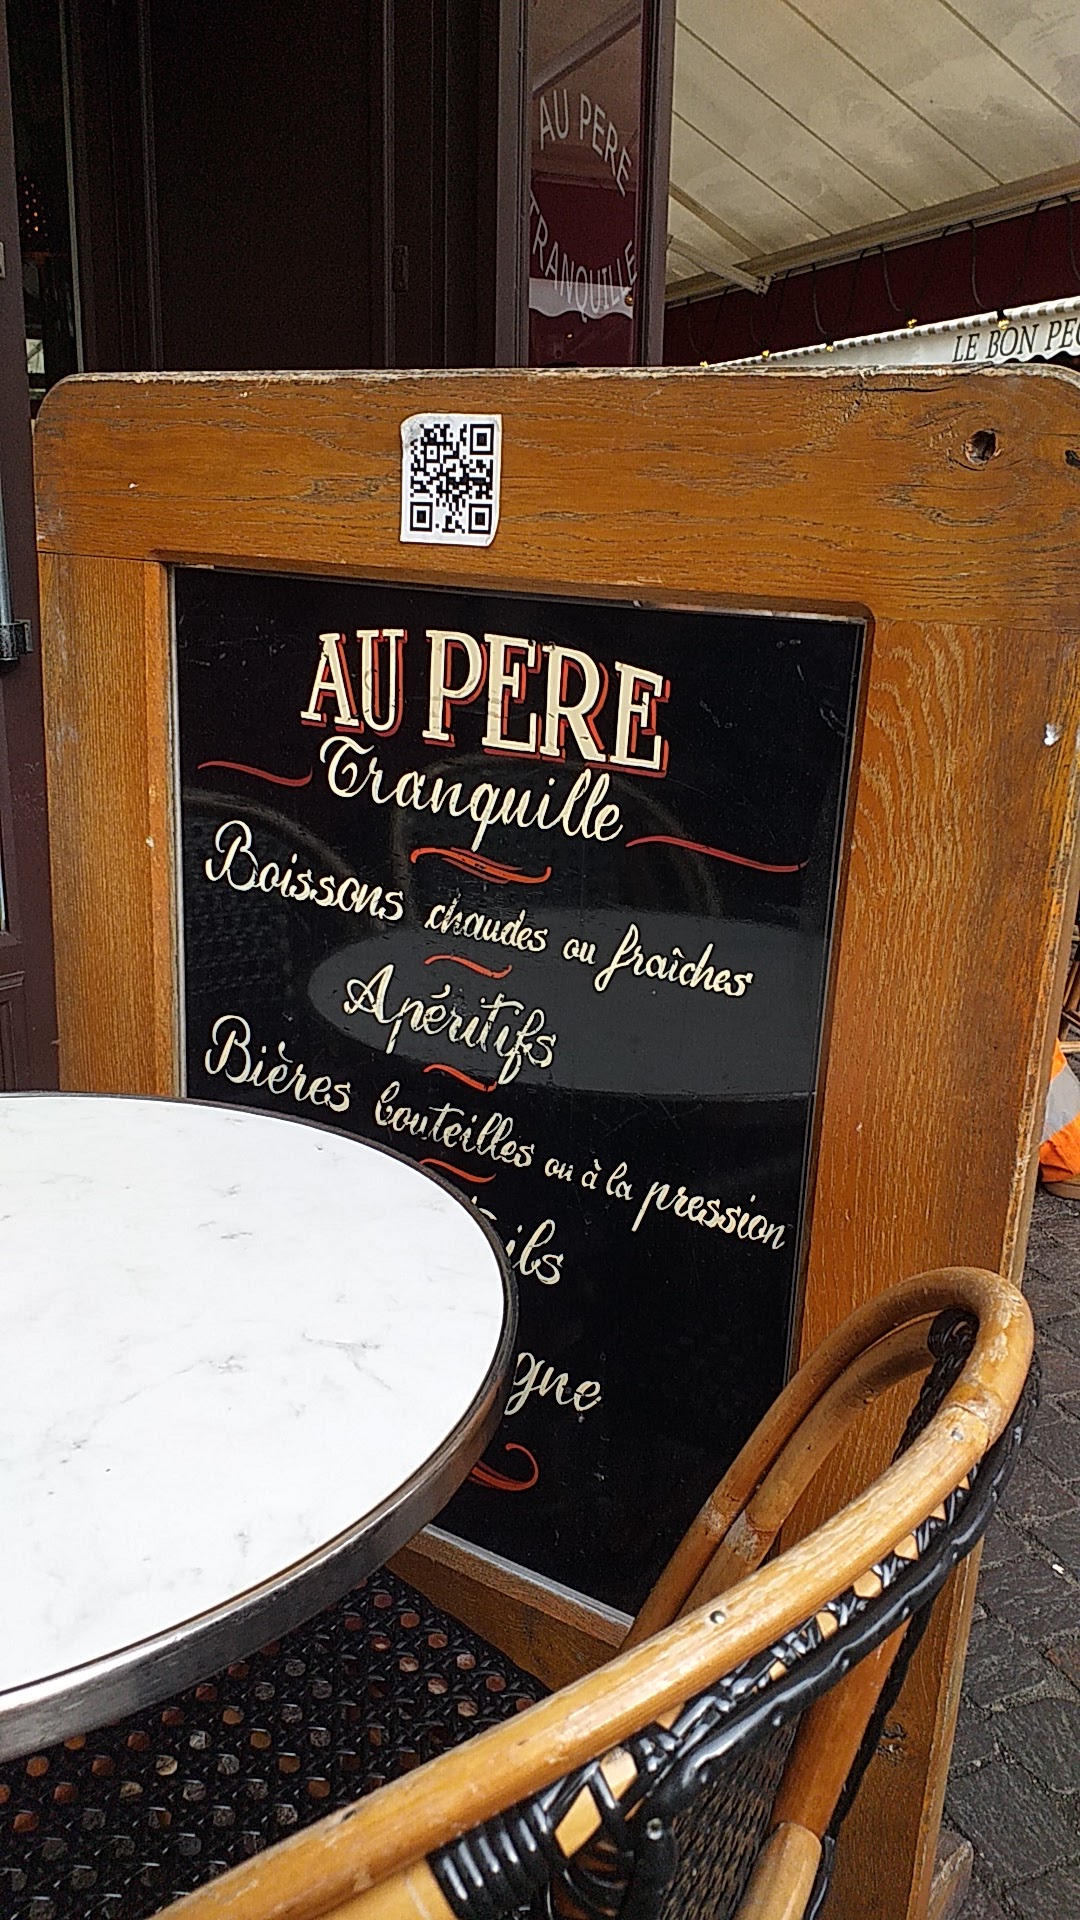 AU PERE
TRANQUILLE
LE BON PE
AU PERE
Tranquille
Boissons chaudes ou fraîches
Apéritifs
Bières bouteilles ou à la pression